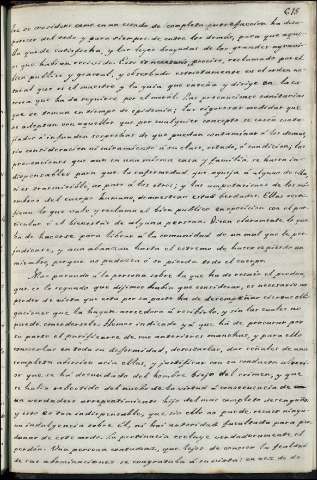 218
que se considera como en un estado de completa putrefaccion ha desa-
parecer del todo y para siempre de entre los demás, para que aque-
lla quede satisfecha, y las leyes vengadas de los grandes agravios
que habían recibido. Este procedimiento, reclamado por el
bien público y general, y observado estrictamente en el orden na-
tural que es el maestro y la guía que enseña y dirige en la ca-
rrera que ha de seguirse por el moral. Las precauciones sanitarias
que se toman en tiempo de epidemia; las rigurosas medidas que
se adoptan con aquellos que por cualquiera concepto se creen conta-
giados ó infunden sospechas de que puedan contaminar á los demás,
sin consideracion ni miramiento á su clase, estado, ó condicion; las
prevenciones que aun en una misma casa y familia se hacen in-
dispensables para que la enfermedad que aqueja á alguno de ella
si es trasmisible, no pase á los otros; y las amputaciones de los mi-
embros del cuerpo humano, demuestran esta verdad. Ellas con-
lo que vale y reclama el bien público en oposicion con el par-
ticular ó el bienestar de alguna persona. Dicen claramente lo que
ha de hacerse para librar á la comunidad de un mal que la per-
judicaría, y aun abanzan hasta el estremo de hacer se pierda un
miembro, porque no padezca ó se pierda todo el cuerpo.
Mas pasando á la persona sobre la que ha de recaer el perdon,
que es lo segundo que dijimos había que considerar, es necesario no
perder de vista que esta por su parte ha de desempeñar ciertas obli-
gaciones que la hagan acreedora á recibirlo, y sin las cuales no
puede concedersele. Hemos indicado ya que há de procurar por
su parte el purificarse de sus anteriores manchas, y para ello
conocerlas en toda su deformidad, detestarlas, dar señales de una
completa adversion ácia ellas, y justificar con su conducta ulteri-
or que se ha desnudado del hombre viejo del crimen, y que
se halla revestido del nuevo de la virtud á consecuencia de
un verdadero arrepentimiento hijo del mas completo desengaño
y esto es tan indispensable, que sin ello no puede recaer ningu-
na indulgencia sobre él, ni hai autoridad facultada para per-
donar de este modo. La pertinacia escluye verdaderamente el
perdon. Una persona contumaz, que lejos de conocer la fealdad
de sus abominaciones se congratula á su vista: en vez de de-